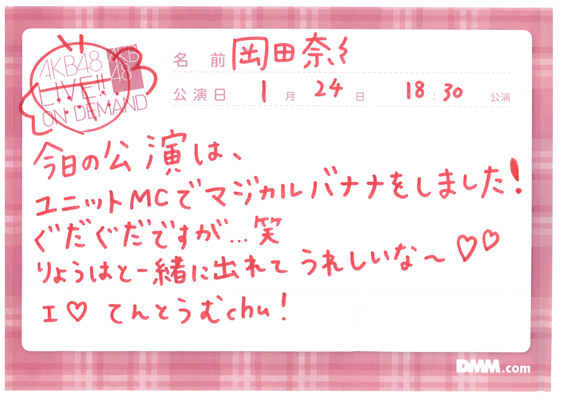 AKB48
LIVE!!
ON DEMAND
AKB48
名 前 岡田奈々
公演日 1 月 24 日 18:30 公演
今日の公演は、
ユニットMCでマジカルバナナをしました!
ぐだぐだですが…笑
りょうはと一緒に出れてうれしいな〜♡♡
I♡てんとうむchu!
DMM.com